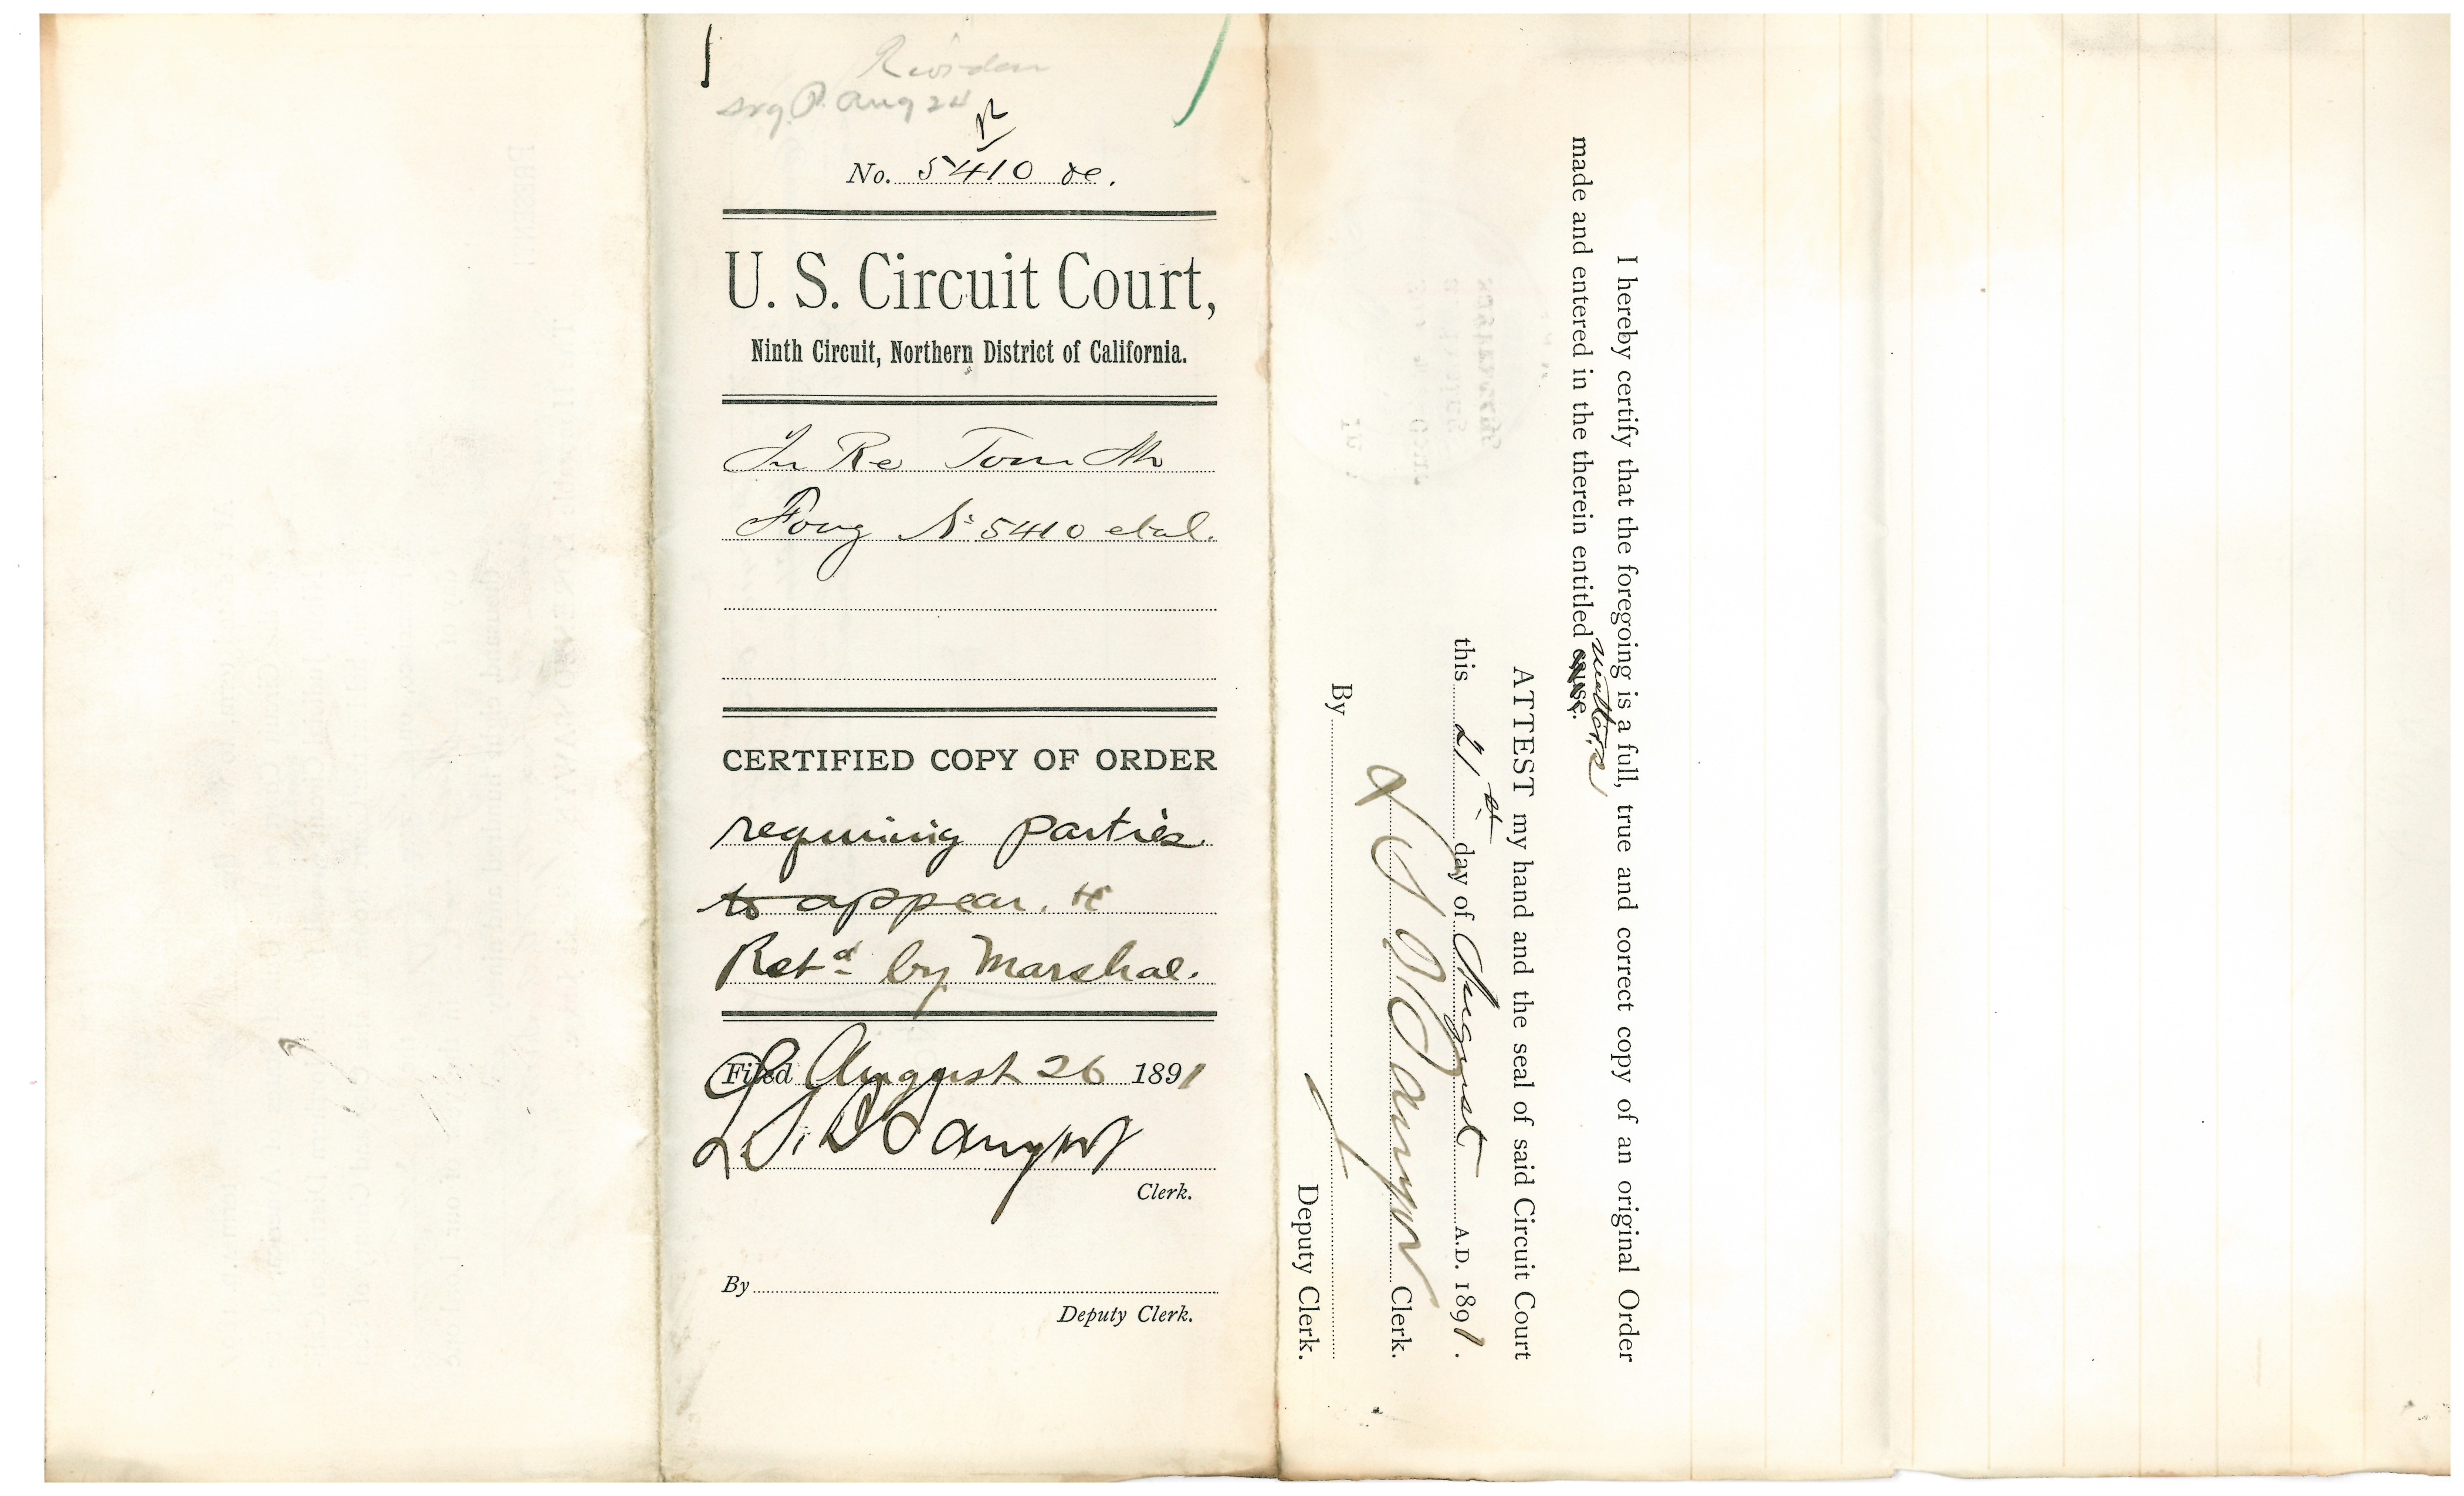 Riordan
svg. P. Aug 24
No. 5410 &c.
U. S. Circuit Court,
Ninth Circuit, Northern District of California.
In Re Tom Ah
Fong No 5410 et al.
CERTIFIED COPY OF ORDER
requiring parties
to appear. &c
Retd by Marshal.
Filed August 26 1891
L. S. B. Sawyer
Clerk.
By
Deputy Clerk.
I hereby certify that the foregoing is a full, true and correct copy of an original Order
made and entered in the therein entitled cause. matters
ATTEST my hand and the seal of said Circuit Court
this 21st day of August A.D. 1891.
L S B Sawyer Clerk.
By
Deputy Clerk.